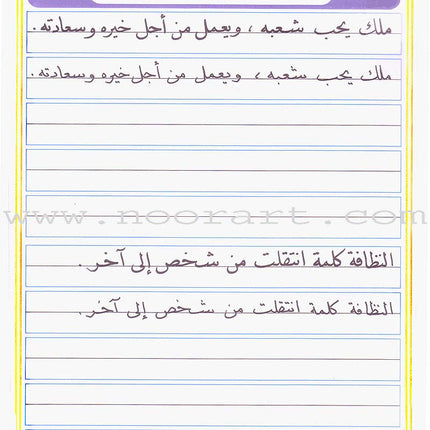 ملك يحب شعبه ، ويعمل من أجل خيره وسعادته .
ملك يحب شعبه ، ويعمل من أجل خيره وسعادته .
www.noorart.com
النظافة كلمة انتقلت من شخص إلى آخر .
النظافة كلمة انتقلت من شخص إلى آخر .